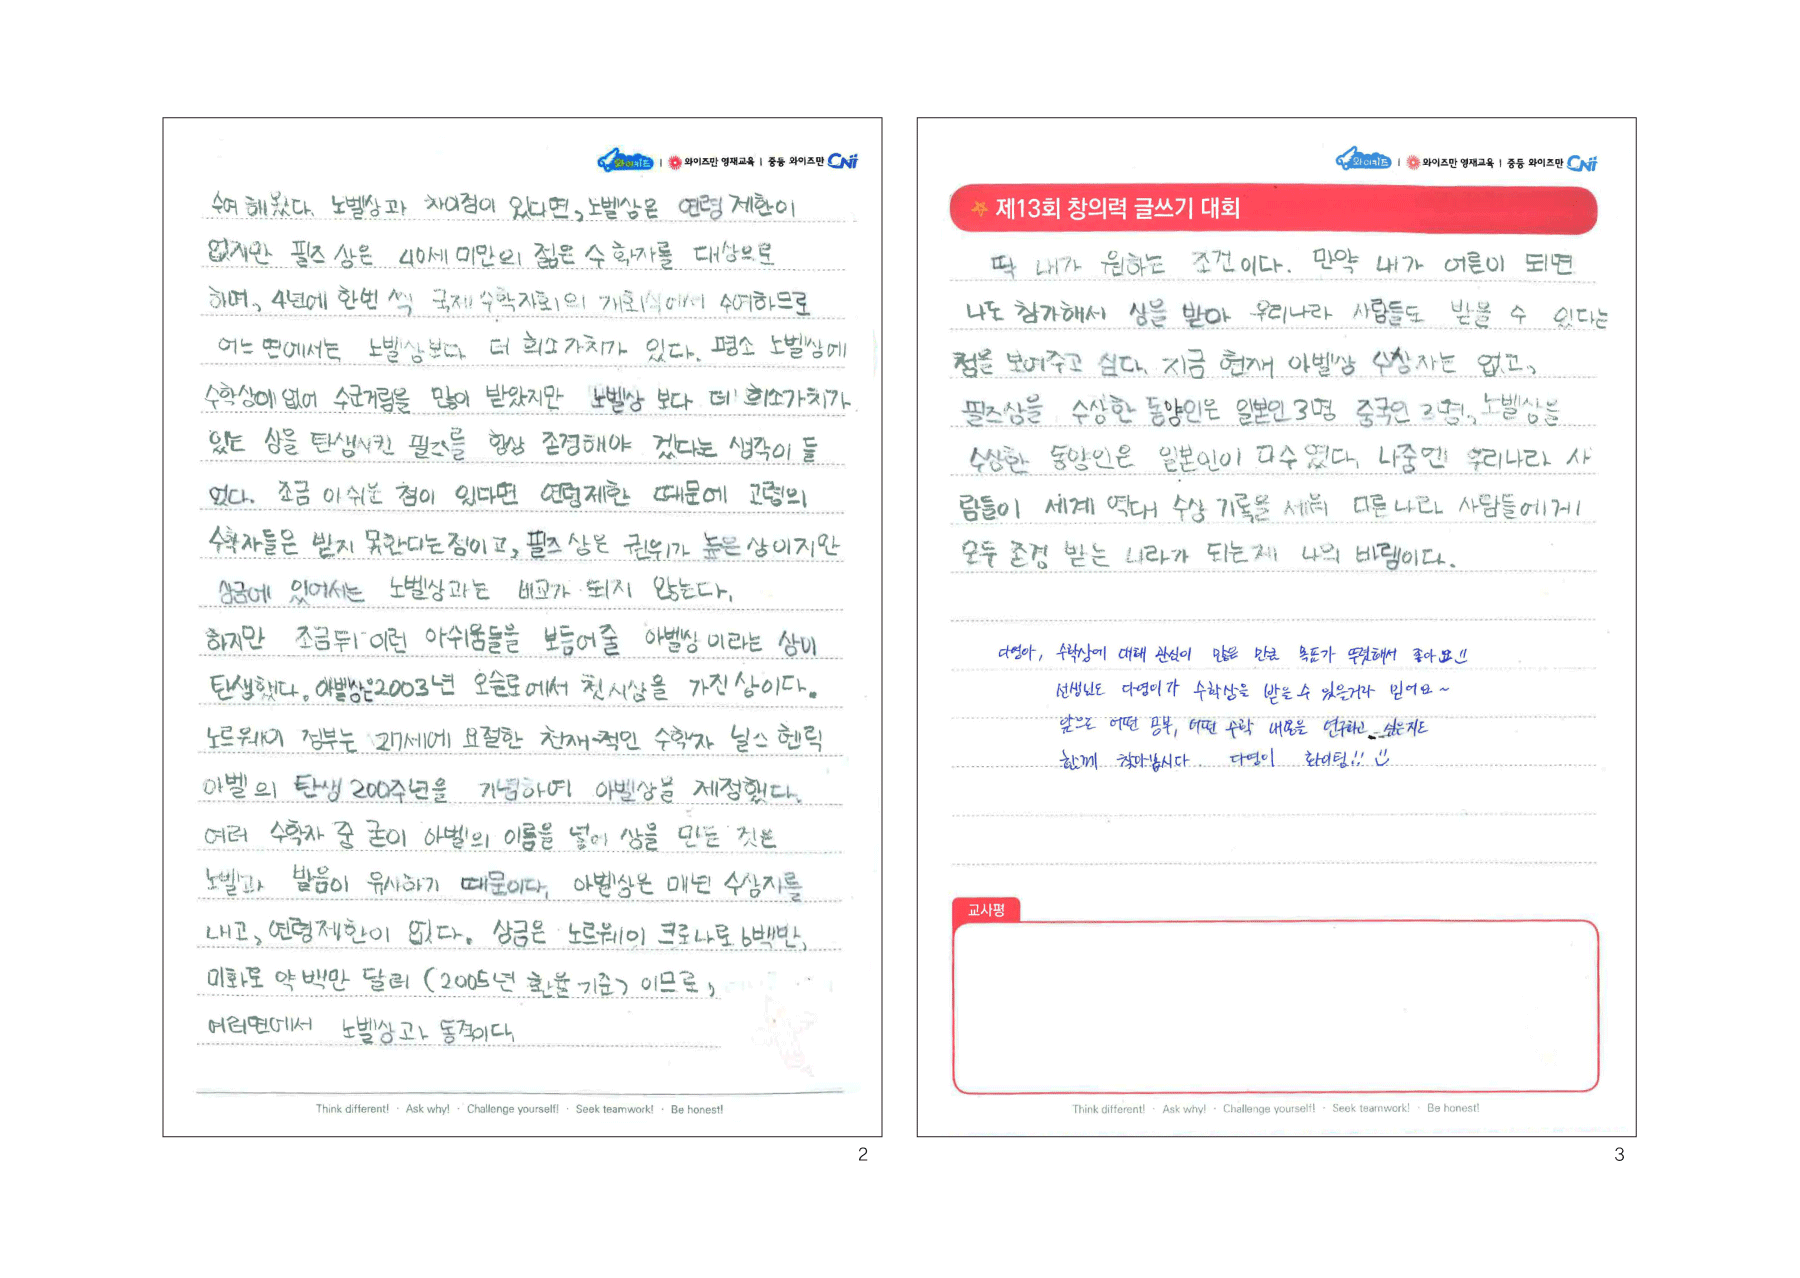 와이키즈 | 와이즈만 영재교육 | 중등 와이즈만 CNI
수여 해왔다. 노벨상과 차이점이 있다면, 노벨상은 연령 제한이
없지만 필즈 상은 40세 미만의 젊은 수학자를 대상으로
하며, 4년에 한번 씩 국제 수학자회의 개회식에서 수여하므로
어느 면에서는 노벨상보다 더 희소가치가 있다. 평소 노벨상에
수학상이 없어 수군거림을 많이 받았지만 노벨상 보다 더 희소가치가
있는 상을 탄생시킨 필즈를 항상 존경해야 겠다는 생각이 들
었다. 조금 아쉬운 점이 있다면 연령제한 때문에 고령의
수학자들은 받지 못한다는점이고, 필즈 상은 권위가 높은 상이지만
상금에 있어서는 노벨상과는 비교가 되지 않는다.
하지만 조금뒤 이런 아쉬움들을 보듬어줄 아벨상 이라는 상이
탄생했다. 아벨상은2003년 오슬로에서 첫시상을 가진상이다.
노르웨이 정부는 27세에 요절한 천재적인 수학자 닐스 헨릭
아벨의 탄생 200주년을 기념하여 아벨상을 제정했다.
여러 수학자 중 굳이 아벨의 이름을 넣어 상을 만든 것은
노벨과 발음이 유사하기 때문이다. 아벨상은 매년 수상자를
내고, 연령제한이 없다. 상금은 노르웨이 크로나로 6백만,
미화로 약 백만 달러 (2005년 환율 기준) 이므로,
여러면에서 노벨상과 동격이다.
Think different! · Ask why! · Challenge yourself! · Seek teamwork! · Be honest!
2
와이키즈 | 와이즈만 영재교육 | 중등 와이즈만 CNI
제13회 창의력 글쓰기 대회
딱 내가 원하는 조건이다. 만약 내가 어른이 되면
나도 참가해서 상을 받아 우리나라 사람들도 받을 수 있다는
점을 보여주고 싶다. 지금 현재 아벨상 수상자는 없고,
필즈상을 수상한 동양인은 일본인 3명 중국인 2명, 노벨상을
수상한 동양인은 일본인이 다수 였다. 나중엔 우리나라 사
람들이 세계 역대 수상 기록을 세워 다른나라 사람들에게
모두 존경 받는 나라가 되는게 나의 바램이다.
다영아, 수학상에 대해 관심이 많은 만큼 목표가 뚜렷해서 좋아요!!
선생님도 다영이가 수학상을 받을 수 있을거라 믿어요~
앞으로 어떤 공부, 어떤 수학 내용을 연구하고 싶은지도
함께 찾아봅시다. 다영이 화이팅!!
교사평
Think different! · Ask why! · Challenge yourself! · Seek teamwork! · Be honest!
3